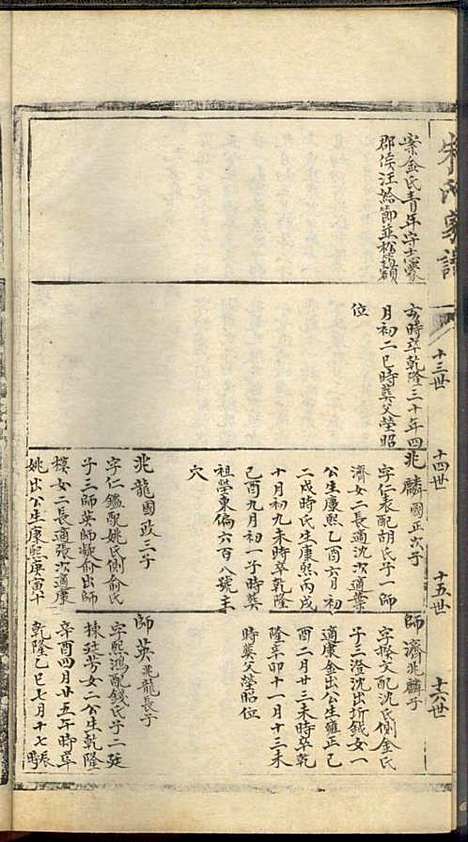 宋氏家譜
十三世
十四世
十五世
十六世
案金氏青年守志蒙
郡侯汪給節並松筠額
亥時卒乾隆三十年四
月初二巳時葬父塋昭
位
兆麟國正次子
字仁表配胡氏子一師
濟女二長適沈次適葉
公生康熙乙酉六月初
二戌時氏生康熙丙戌
十月初九未時卒乾隆
己酉九月初一子時葬
祖塋東偏六百八號主
穴
兆龍國政三子
字仁鑑配姚氏側俞氏
子三師英師 俞出師
櫰女二長適張次適康
姚出公生康熙庚寅十
師濟兆麟子
字揆文配沈氏側金氏
子三澄沈出折鉞女一
適康金出公生雍正己
酉二月廿三未時卒乾
隆辛卯十一月十三未
時葬父塋昭位
師英兆龍長子
字熙鴻配錢氏子二廷
棟廷芳女二公生乾隆
辛酉四月廿五午時卒
乾隆乙巳七月十七辰時